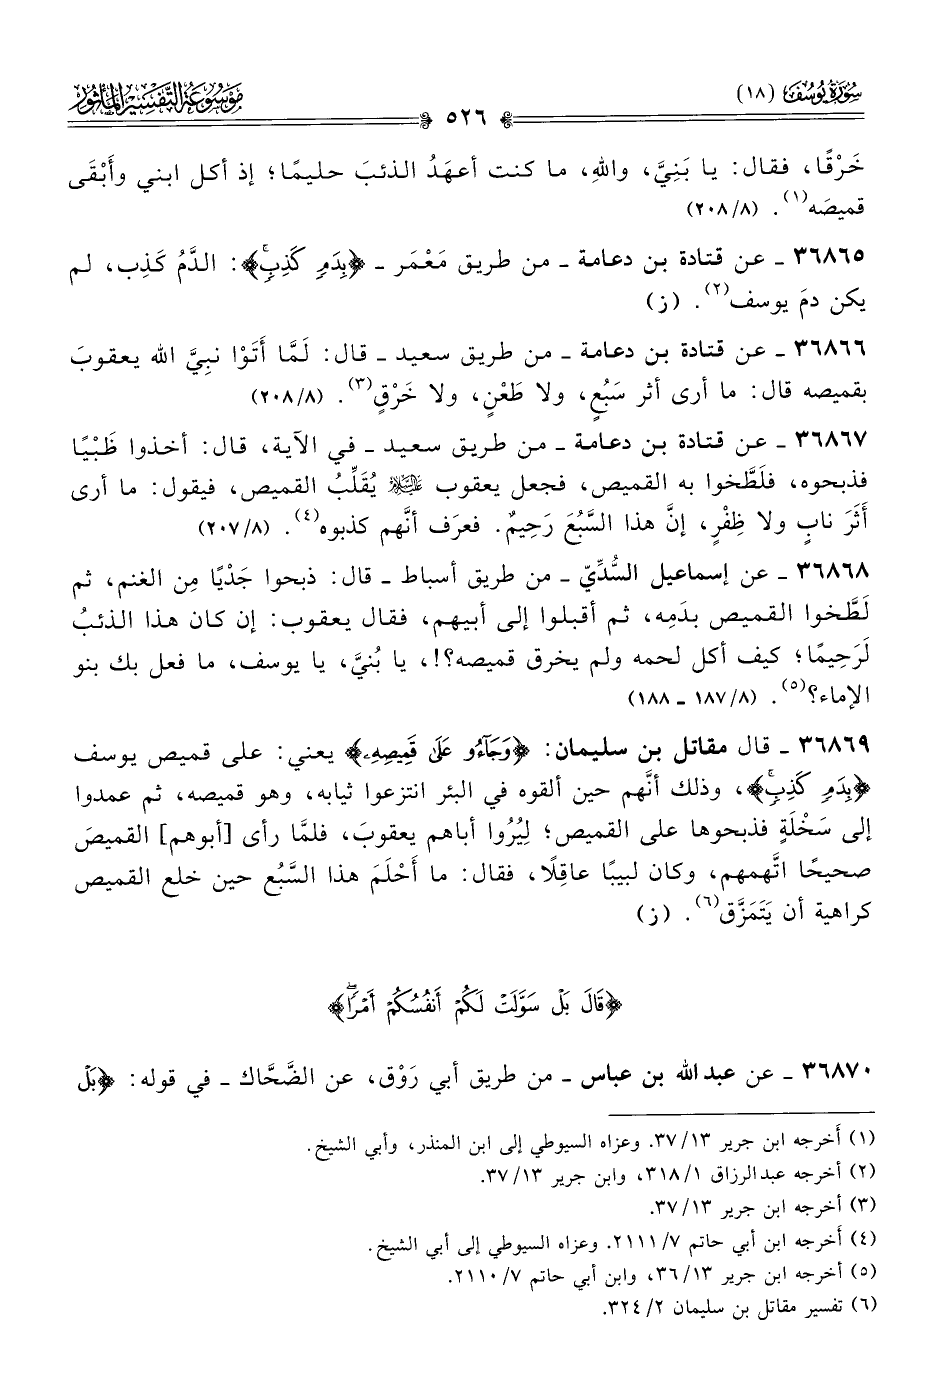 سُورَةُ يُوسُفَ (١٨)
٥٢٦
مَوْسُوعَةُ التَّفْسِيرِ المَأْثُورِ
خَرْقًا، فقال: يا بَنِيَّ، واللهِ، ما كنت أعهَدُ الذئبَ حليمًا؛ إذ أكل ابني وأَبْقَى
قميصَه(١). (٢٠٨/٨)
٣٦٨٦٥ ـ عن قتادة بن دعامة ـ من طريق مَعْمَر ـ ﴿بِدَمٍ كَذِبٍ﴾: الدَّمُ كَذِب، لم
يكن دمَ يوسف(٢). (ز)
٣٦٨٦٦ ـ عن قتادة بن دعامة ـ من طريق سعيد ـ قال: لَمَّا أَتَوْا نبِيَّ الله يعقوبَ
بقميصه قال: ما أرى أثر سَبُعٍ، ولا طَعْنٍ، ولا خَرْقٍ(٣). (٢٠٨/٨)
٣٦٨٦٧ ـ عن قتادة بن دعامة ـ من طريق سعيد ـ في الآية، قال: أخذوا ظَبْيًا
فذبحوه، فلَطَّخوا به القميص، فجعل يعقوب عليه السلام يُقَلِّبُ القميص، فيقول: ما أرى
أَثَرَ نابٍ ولا ظِفْرٍ، إنَّ هذا السَّبُعَ رَحِيمٌ. فعرَف أنَّهم كذبوه(٤). (٢٠٧/٨)
٣٦٨٦٨ ـ عن إسماعيل السُّدِّيّ ـ من طريق أسباط ـ قال: ذبحوا جَدْيًا مِن الغنم، ثم
لَطَّخوا القميص بدَمِه، ثم أقبلوا إلى أبيهم، فقال يعقوب: إن كان هذا الذئبُ
لَرَحِيمًا؛ كيف أكل لحمه ولم يخرق قميصه؟!، يا بُنيَّ، يا يوسف، ما فعل بك بنو
الإماء؟(٥). (١٨٧/٨ ـ ١٨٨)
٣٦٨٦٩ ـ قال مقاتل بن سليمان: ﴿وَجَآءُو عَلَىٰ قَمِيصِهِۦ﴾ يعني: على قميص يوسف
﴿بِدَمٍ كَذِبٍ﴾، وذلك أنَّهم حين ألقوه في البئر انتزعوا ثيابه، وهو قميصه، ثم عمدوا
إلى سَخْلَةٍ فذبحوها على القميص؛ لِيُرُوا أباهم يعقوبَ، فلمَّا رأى [أبوهم] القميصَ
صحيحًا اتَّهمهم، وكان لبيبًا عاقِلًا، فقال: ما أَحْلَمَ هذا السَّبُع حين خلع القميص
كراهية أن يَتَمَزَّق(٦). (ز)
﴿قَالَ بَلْ سَوَّلَتْ لَكُمْ أَنفُسُكُمْ أَمْرًا﴾
٣٦٨٧٠ ـ عن عبد الله بن عباس ـ من طريق أبي رَوْق، عن الضَّحَّاك ـ في قوله: ﴿بَلْ
(١) أخرجه ابن جرير ٣٧/١٣. وعزاه السيوطي إلى ابن المنذر، وأبي الشيخ.
(٢) أخرجه عبدالرزاق ٣١٨/١، وابن جرير ٣٧/١٣.
(٣) أخرجه ابن جرير ٣٧/١٣.
(٤) أخرجه ابن أبي حاتم ٢١١١/٧. وعزاه السيوطي إلى أبي الشيخ.
(٥) أخرجه ابن جرير ٣٦/١٣، وابن أبي حاتم ٢١١٠/٧.
(٦) تفسير مقاتل بن سليمان ٣٢٤/٢.